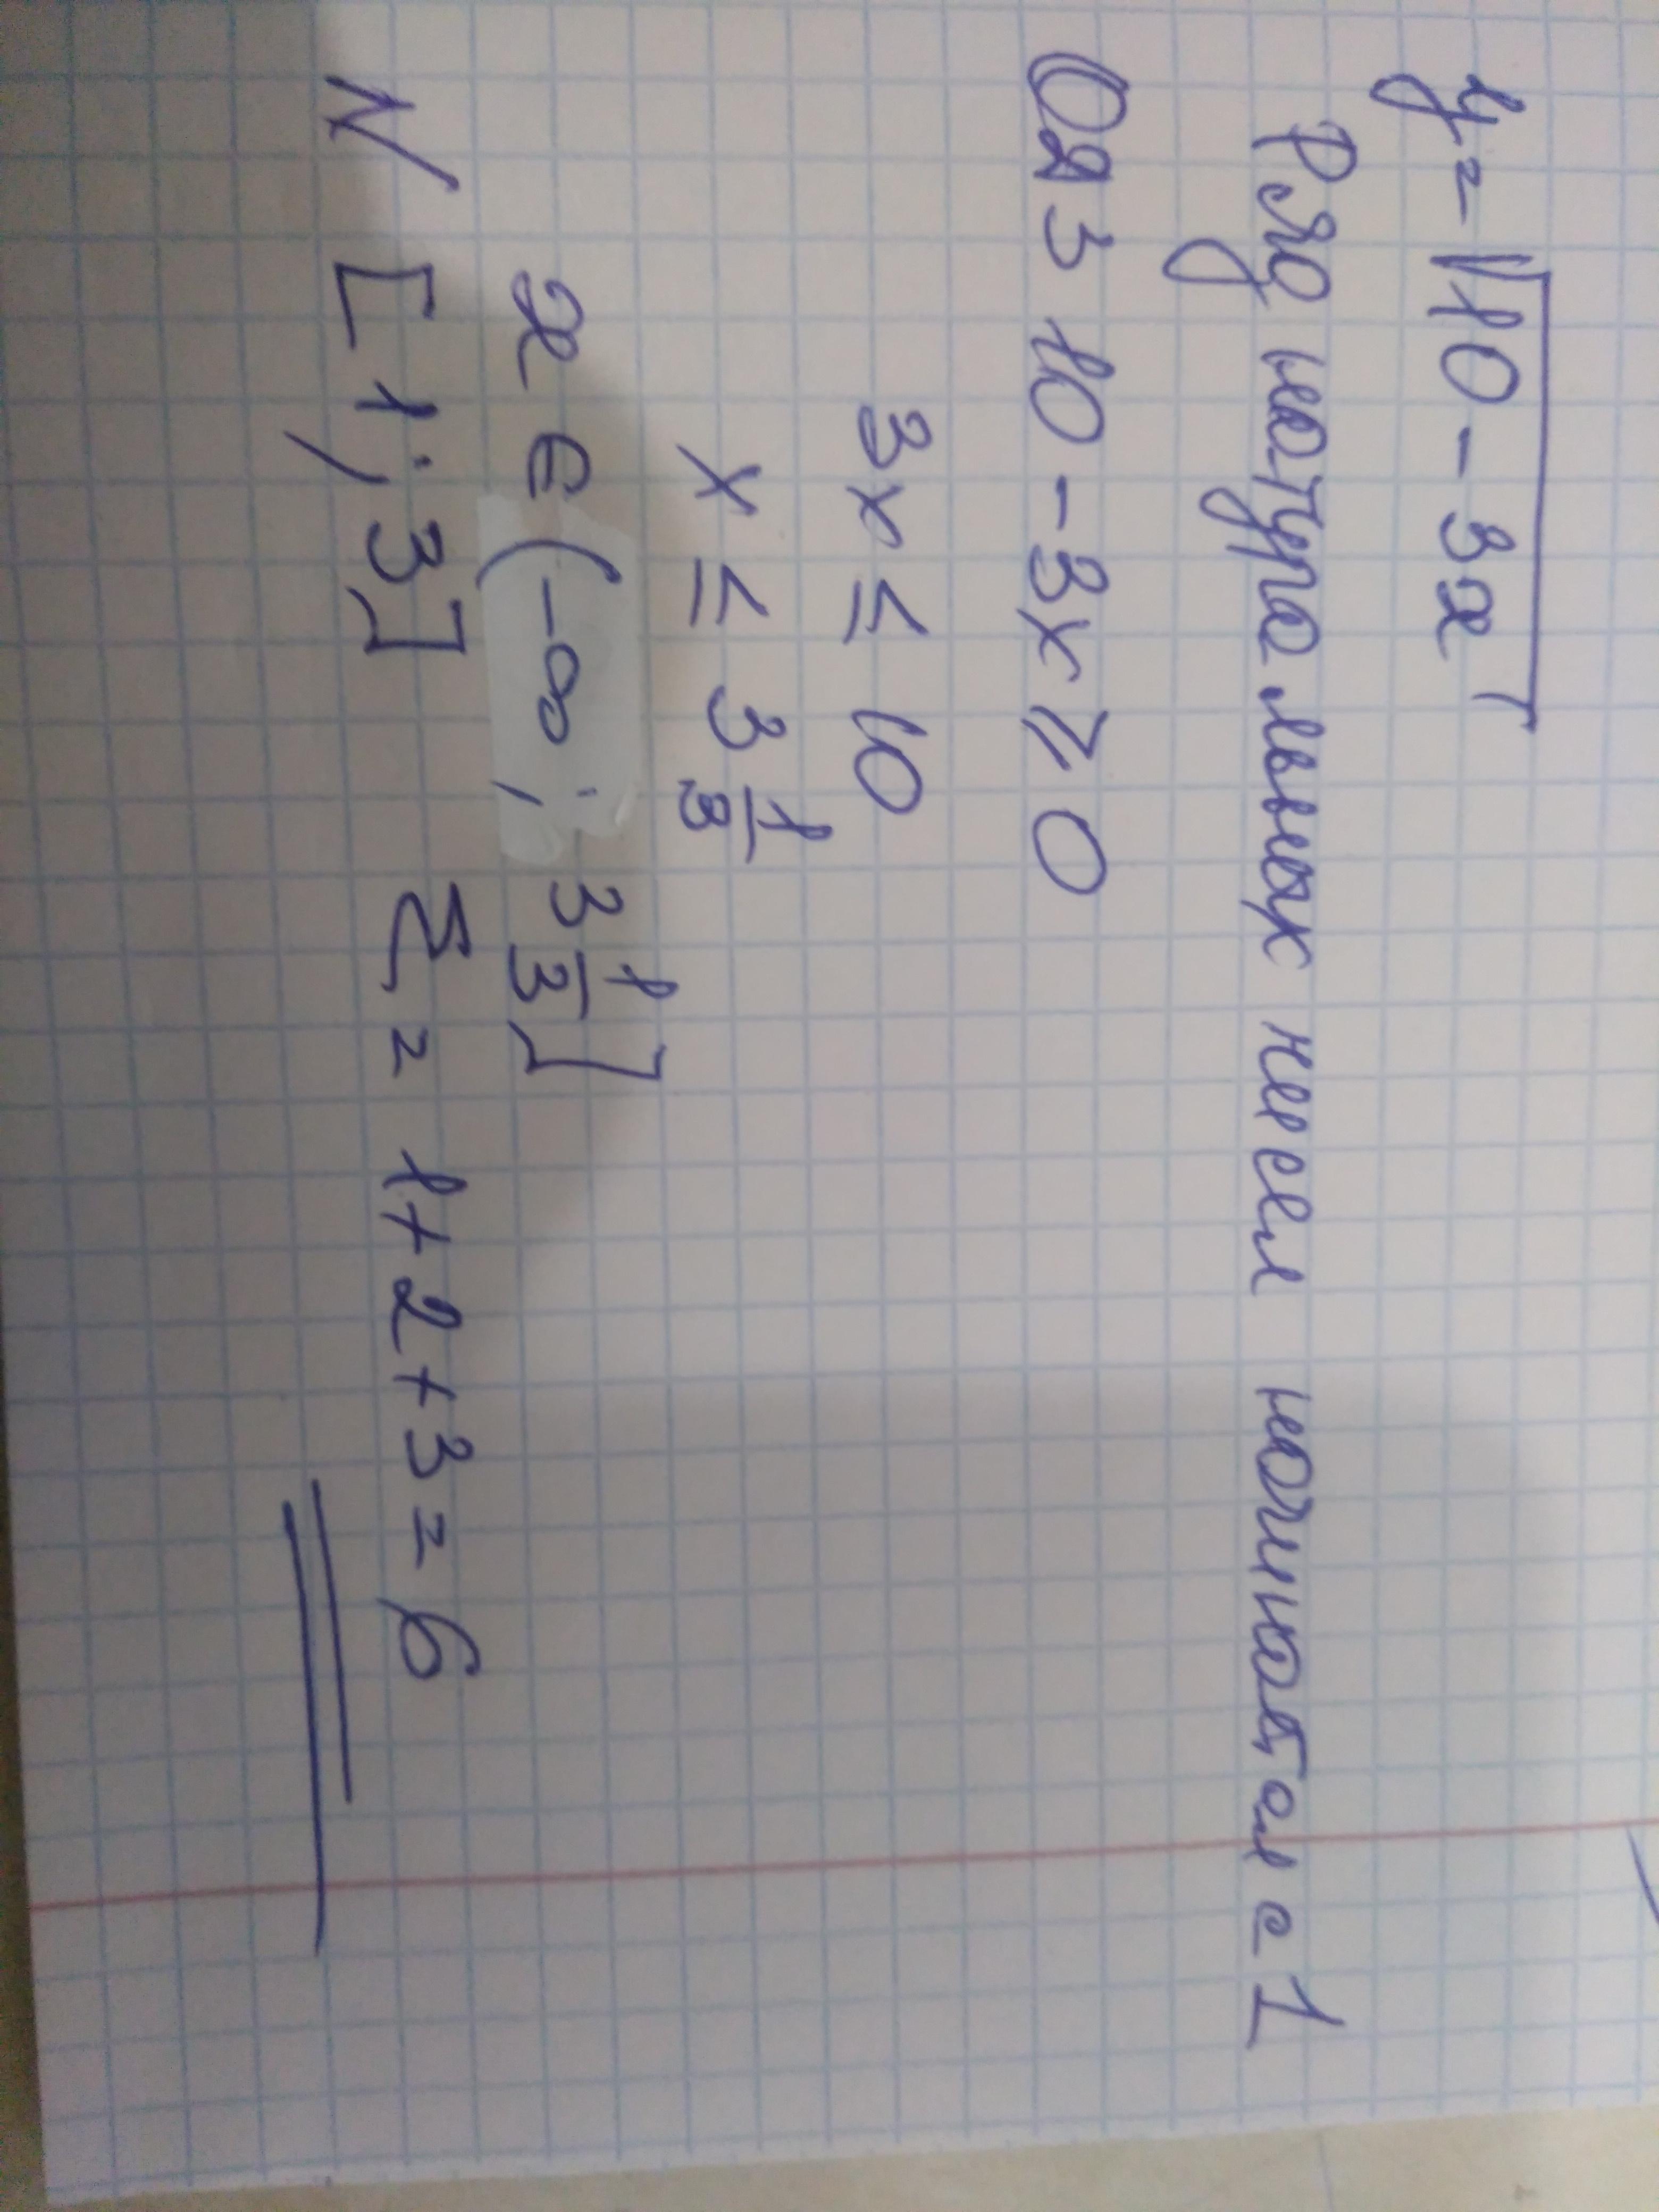 y = √10 - 3x
Ряд натуральных чисел начинается с 1
ОДЗ 10 - 3x ⩾ 0
3x ≤ 10
x ≤ 3 1/3
x ∈ (-∞; 3 1/3]
N [1; 3] Σ = 1 + 2 + 3 = 6